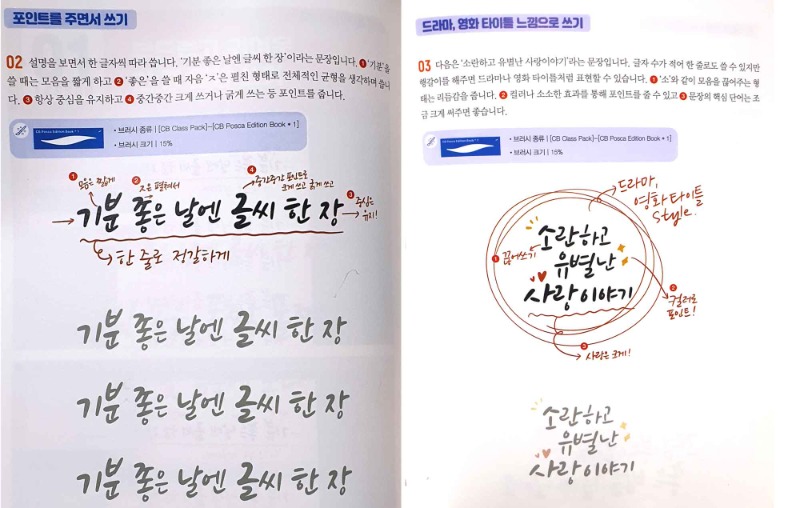 포인트를 주면서 쓰기
02 설명을 보면서 한 글자씩 따라 씁니다. '기분 좋은 날엔 글씨 한 장'이라는 문장입니다. ❶ '기분'을
쓸 때는 모음을 짧게 하고 ❷ '좋은'을 쓸 때 자음 'ㅈ'은 펼친 형태로 전체적인 균형을 생각하며 씁니
다. ❸ 항상 중심을 유지하고 ❹ 중간중간 크게 쓰거나 굵게 쓰는 등 포인트를 줍니다.
CB Posca Edition Book * 1
• 브러시 종류 | [CB Class Pack]–[CB Posca Edition Book * 1]
• 브러시 크기 | 15%
❶ 모음은 짧게
❷ ㅈ은 펼쳐서
❹ 중간중간 포인트로
크게 쓰고 굵게 쓰고
기분 좋은 날엔 글씨 한 장
❸ 중심은
유지!
한 줄로 정갈하게
기분 좋은 날엔 글씨 한 장
기분 좋은 날엔 글씨 한 장
기분 좋은 날엔 글씨 한 장
드라마, 영화 타이틀 느낌으로 쓰기
03 다음은 '소란하고 유별난 사랑이야기'라는 문장입니다. 글자 수가 적어 한 줄로도 쓸 수 있지만
행갈이를 해주면 드라마나 영화 타이틀처럼 표현할 수 있습니다. ❶ '소'와 같이 모음을 끊어주는 형
태는 리듬감을 줍니다. ❷ 컬러나 소소한 효과를 통해 포인트를 줄 수 있고 ❸ 문장의 핵심 단어는 조
금 크게 써주면 좋습니다.
CB Posca Edition Book * 1
• 브러시 종류 | [CB Class Pack]–[CB Posca Edition Book * 1]
• 브러시 크기 | 15%
드라마,
영화 타이틀
style.
❶ 끊어쓰기
소란하고
유별난
사랑이야기
❷ 컬러로
포인트!
❸ 사랑은 크게!
소란하고
유별난
사랑이야기